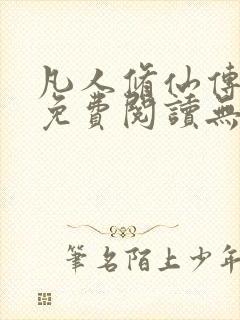 凡人修仙傳
免費閱讀無
筆名陌上少年